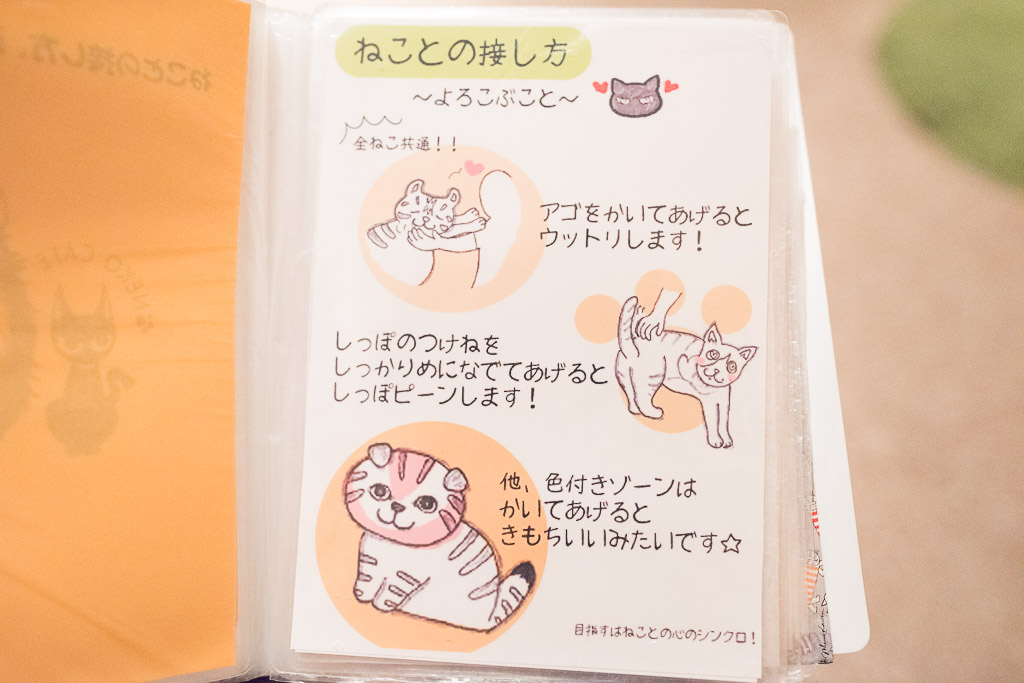 ねことの接し方
～よろこぶこと～
全ねこ共通！！
アゴをかいてあげると
ウットリします！
しっぽのつけねを
しっかりめになでてあげると
しっぽピーンします！
他、色付きゾーンは
かいてあげると
きもちいいみたいです☆
目指すはねことの心のシンクロ！
NEKO CAFE